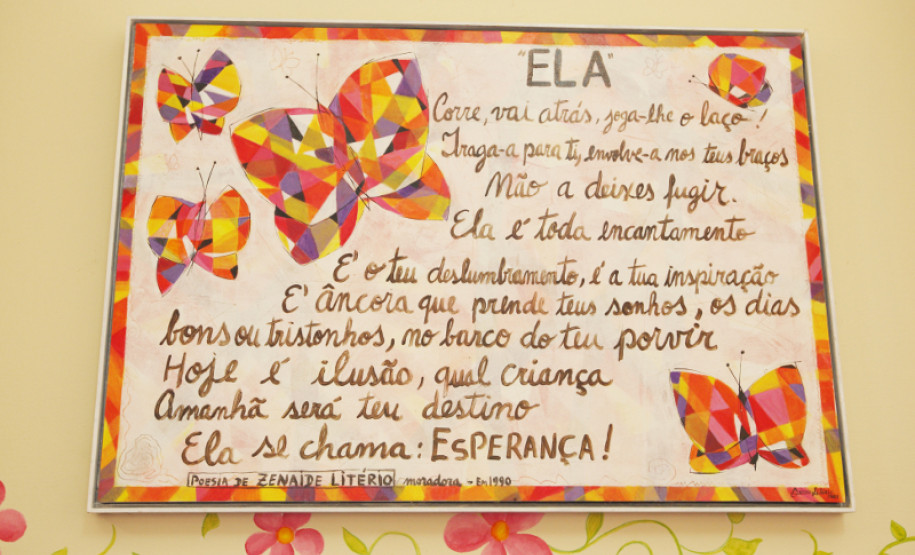 "ELA"
Corre, vai atrás, joga-lhe o laço!
Traga-a para ti, envolve-a nos teus braços
Não a deixes fugir.
Ela é toda encantamento
E' o teu deslumbramento, é a tua inspiração
E' âncora que prende teus sonhos, os dias
bons ou tristonhos, no barco do teu porvir
Hoje é ilusão, qual criança
Amanhã será teu destino
Ela se chama: ESPERANÇA!
POESIA DE ZENAIDE LITÉRIO moradora - Em 1990